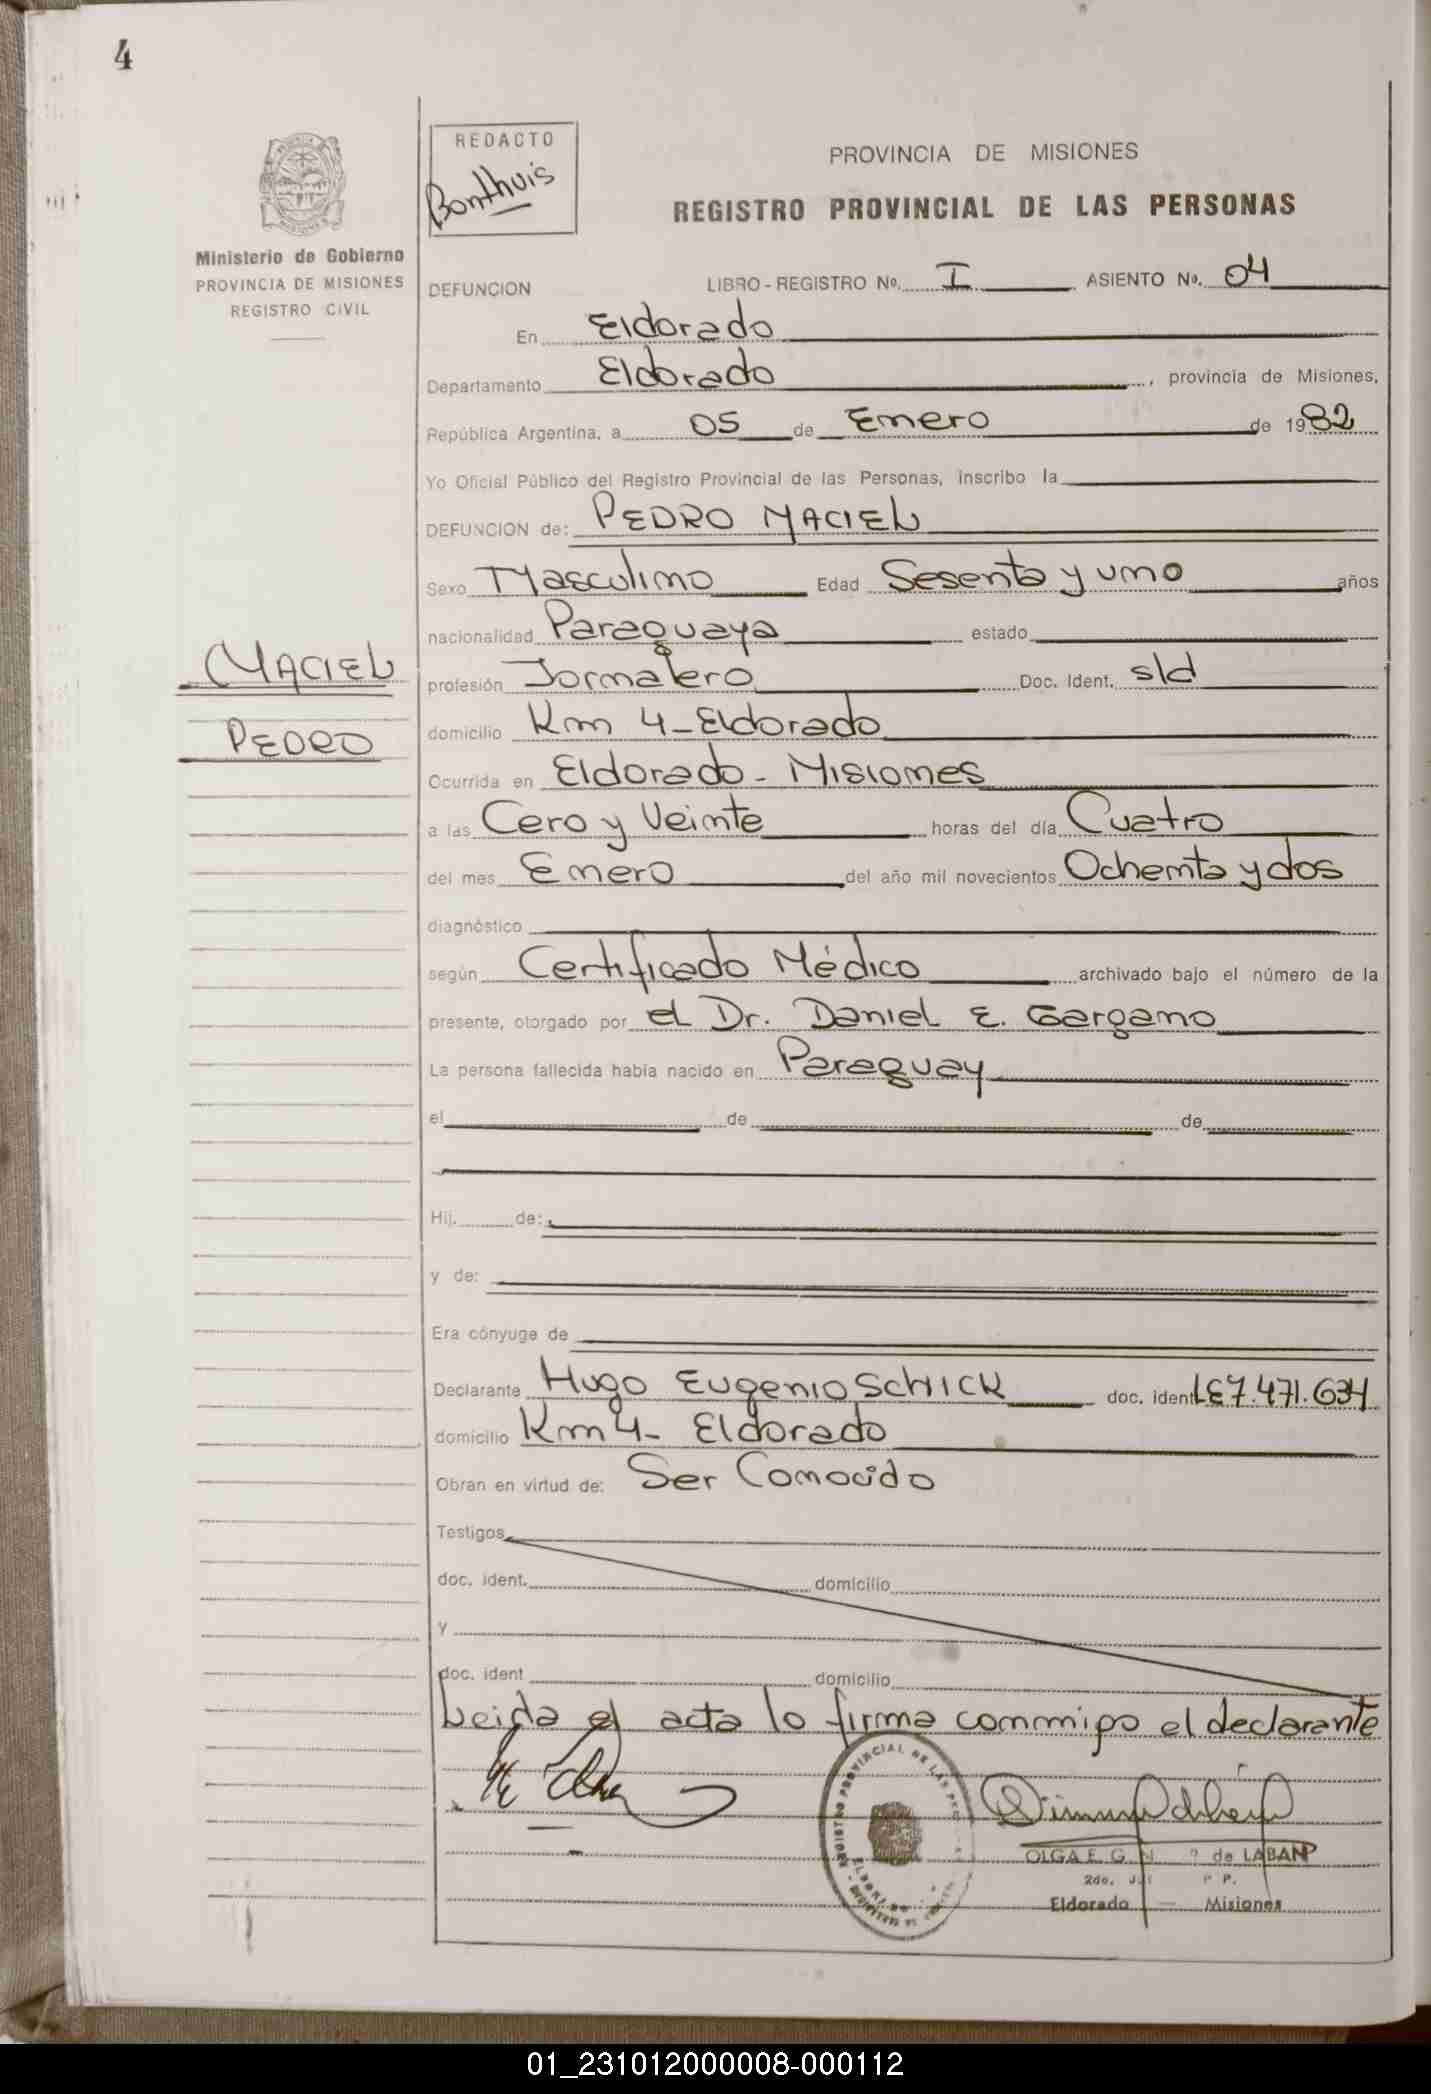 4
REDACTO
Bonthuis
PROVINCIA DE MISIONES
REGISTRO PROVINCIAL DE LAS PERSONAS
Ministerio de Gobierno
PROVINCIA DE MISIONES
REGISTRO CIVIL
DEFUNCION LIBRO - REGISTRO No. I ASIENTO No. 04
En Eldorado
Departamento Eldorado, provincia de Misiones,
República Argentina, a 05 de Enero de 1982
Yo Oficial Público del Registro Provincial de las Personas, inscribo la
DEFUNCION de: PEDRO MACIEL
Sexo Masculino Edad Sesenta y uno años
nacionalidad Paraguaya estado
MACIEL
PEDRO
profesión Jornalero Doc. Ident. s/d
domicilio Km 4 - Eldorado
Ocurrida en Eldorado - Misiones
a las Cero y Veinte horas del día Cuatro
del mes Enero del año mil novecientos Ochenta y dos
diagnóstico
según Certificado Médico archivado bajo el número de la
presente, otorgado por el Dr. Daniel E. Gargano
La persona fallecida había nacido en Paraguay
el de de
Hij. de:
y de:
Era cónyuge de
Declarante Hugo Eugenio SCHICK doc. ident LE 7.471.634
domicilio Km 4 - Eldorado
Obran en virtud de: Ser Conocido
Testigos
doc. ident. domicilio
y
doc. ident domicilio
Leida el acta lo firma conmigo el declarante
REGISTRO PROVINCIAL DE LAS
OLGA E. G. de LABAN
2do.
Eldorado — Misiones
01_231012000008-000112